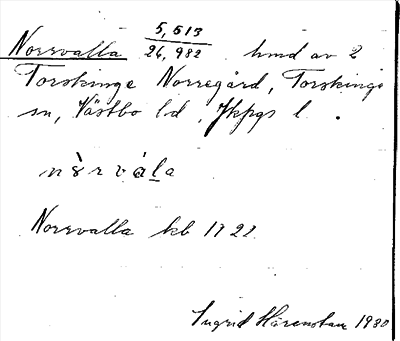 5,613
Norrvalla 26,982 hmd av 2
Torskinge Norregård, Torskinge
sn, Västbo hd, Jkpgs l.
Norrvalla kb 1722
Ingrid Härenstam 1930